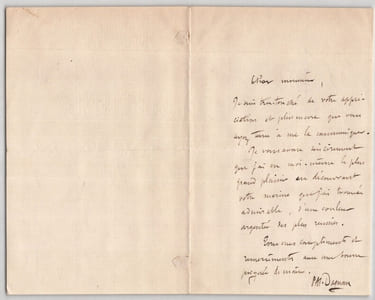 Cher monsieur,
Je suis très touché de votre appré-
ciation et plus encore que vous
ayez tenu à me la communiquer.
Je vous avoue sincèrement
que j'ai eu moi-même le plus
grand plaisir en découvrant
votre marine que j'ai trouvée
admirable, d'une couleur
argentée des plus réussies.
Tous mes compliments et
remerciements avec une bonne
poignée de main.